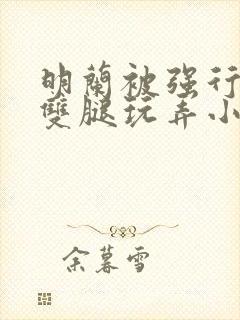 明蘭被强行
雙腿玩弄小
余暮雪